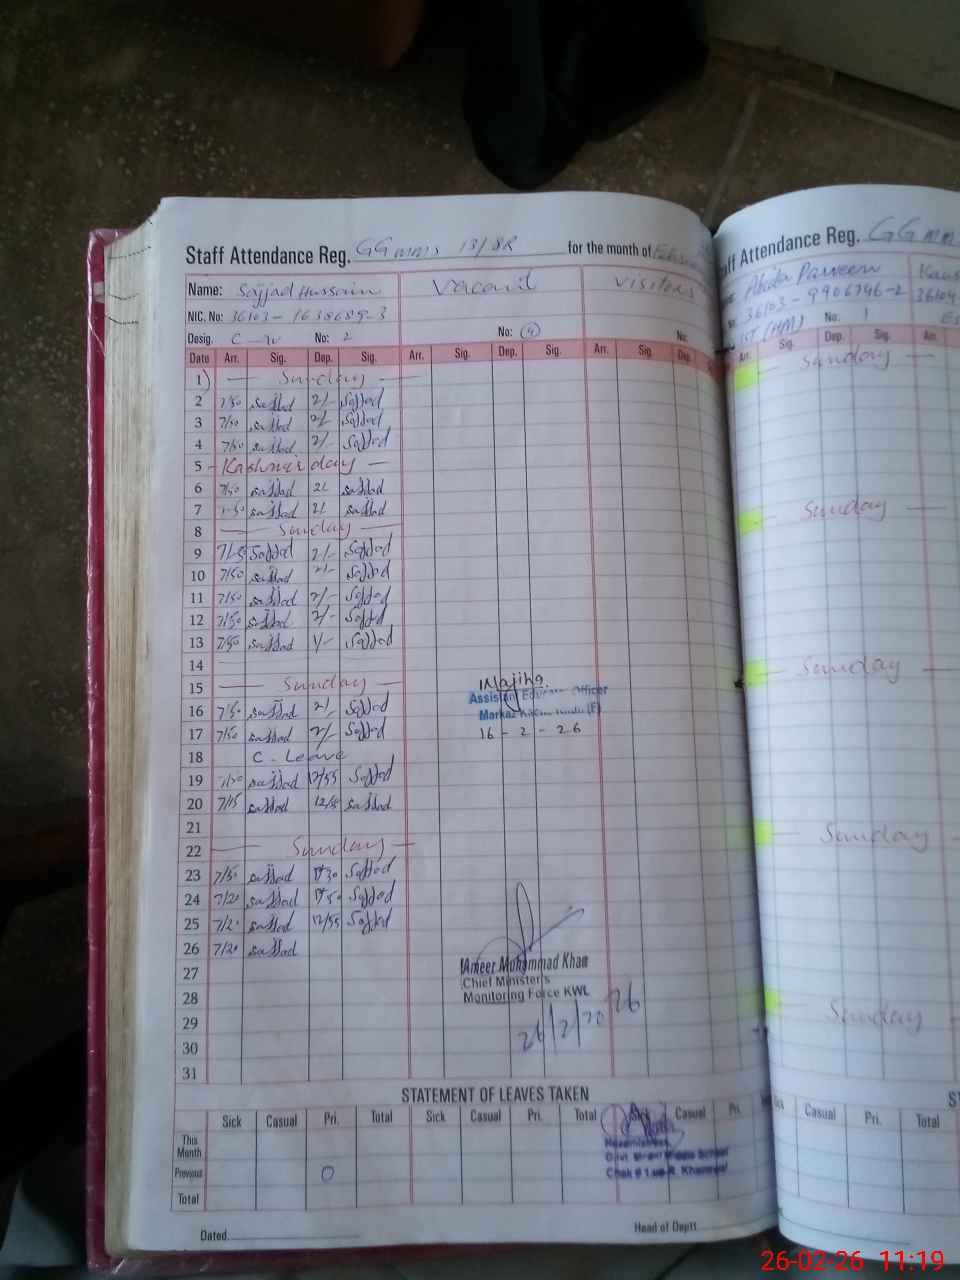 Staff Attendance Reg. GGmms 13/8R for the month of
Name: Sajjad Hussain Vacant Visitors
NIC. No: 36103-1638689-3
Desig. C - No: 2 No: (4) No:
Date Arr. Sig. Dep. Sig. Arr. Sig. Dep. Sig. Arr. Sig. Dep.
1) Sunday
2 7/50 Sajjad 2/- Sajjad
3 7/50 Sajjad 2/- Sajjad
4 7/50 Sajjad 2/- Sajjad
5 Kashmir day
6 7/50 Sajjad 2/- Sajjad
7 7/50 Sajjad 2/- Sajjad
8 Sunday
9 Sajjad 2/- Sajjad
10 7/50 Sajjad 2/- Sajjad
11 7/50 Sajjad 2/- Sajjad
12 7/50 Sajjad 2/- Sajjad
13 7/50 Sajjad 1/- Sajjad
14
15 Sunday
Assistant Education Officer
16 7/50 Sajjad 2/- Sajjad
Markaz (F)
17 7/50 Sajjad 2/- Sajjad
16-2-26
18 C. Leave
19 Sajjad 12/55 Sajjad
20 7/15 Sajjad Sajjad
21
22 Sunday
23 7/50 Sajjad Sajjad
24 7/20 Sajjad Sajjad
25 7/20 Sajjad 12/55 Sajjad
26 7/20 Sajjad
27
Ameer Muhammad Khan
Chief Minister's
28
Monitoring Force KWL
29
26/2/2026
30
31
STATEMENT OF LEAVES TAKEN
Sick Casual Pri. Total Sick Casual Pri. Total Sick Casual Pri.
This Month
Previous 0
Total
Headmistress
Chak # 13/8-R. Khanewal
Dated Head of Deptt.
Staff Attendance Reg. GGmm
Abida Parveen
36103-9906746-2 36104
(HM) No: 1
Arr. Sig. Dep. Sig. Arr.
Sunday
Sunday
Sunday
Sunday
Sunday
Sick Casual Pri. Total
26-02-26 11:19